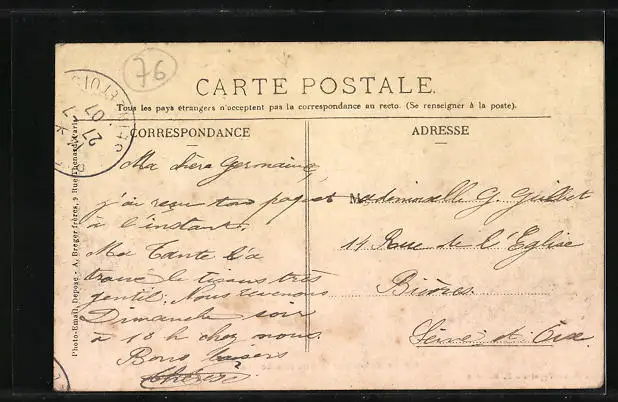 76
CARTE POSTALE.
Tous les pays étrangers n'acceptent pas la correspondance au recto. (Se renseigner à la poste).
CORRESPONDANCE
ADRESSE
Ma chère Germaine,
j'ai reçu ton paquet
à l'instant.
Ma Tante l'a
trouvé le tissus très
gentil. Nous revenons
Dimanche soir
à 18 h chez nous.
Bons baisers
Thérèse
Mademoiselle G. Guilbet
14 Rue de l'Eglise
Bièvres
Seine et Oise
Photo-Email, Depose - A. Breger frères, 9 Rue Thénard, Paris
27
07